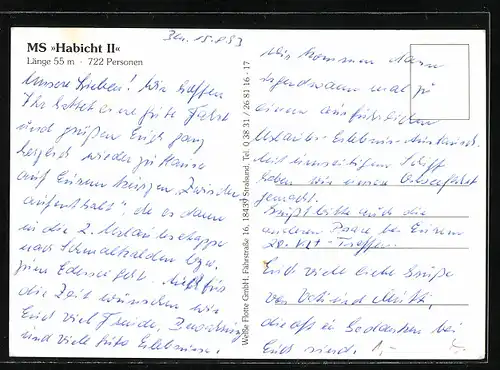 MS »Habicht II«
Länge 55 m · 722 Personen
Unsere Lieben! Wir hoffen
Ihr hattet eine gute Fahrt
und grüßen Euch ganz
herzlich wieder zu Hause
auf Eurem kurzen „Zwischen
aufenthalt", da es dann
in die 2. Urlaubsetappe
nach Schmalkalden bzw.
zum Edersee geht. für
die Zeit wünschen wir
Euch viel Freude,
und viele gute Erlebnisse.
Weiße Flotte GmbH, Fährstraße 16, 18439 Stralsund, Tel. 0 38 31 / 26 81 16 - 17
Wir kommen dann
irgendwann mal zu
einem ausführlichen
Urlaubs-Erlebnis-Austausch.
Mit Schiff
haben wir unsere Ostseefahrt
gemacht.
Grüßt bitte auch die
anderen Paare bei Eurem
20. Treffen.
Euch viele liebe Grüße
von und
die oft in Gedanken bei
Euch sind. 1,-